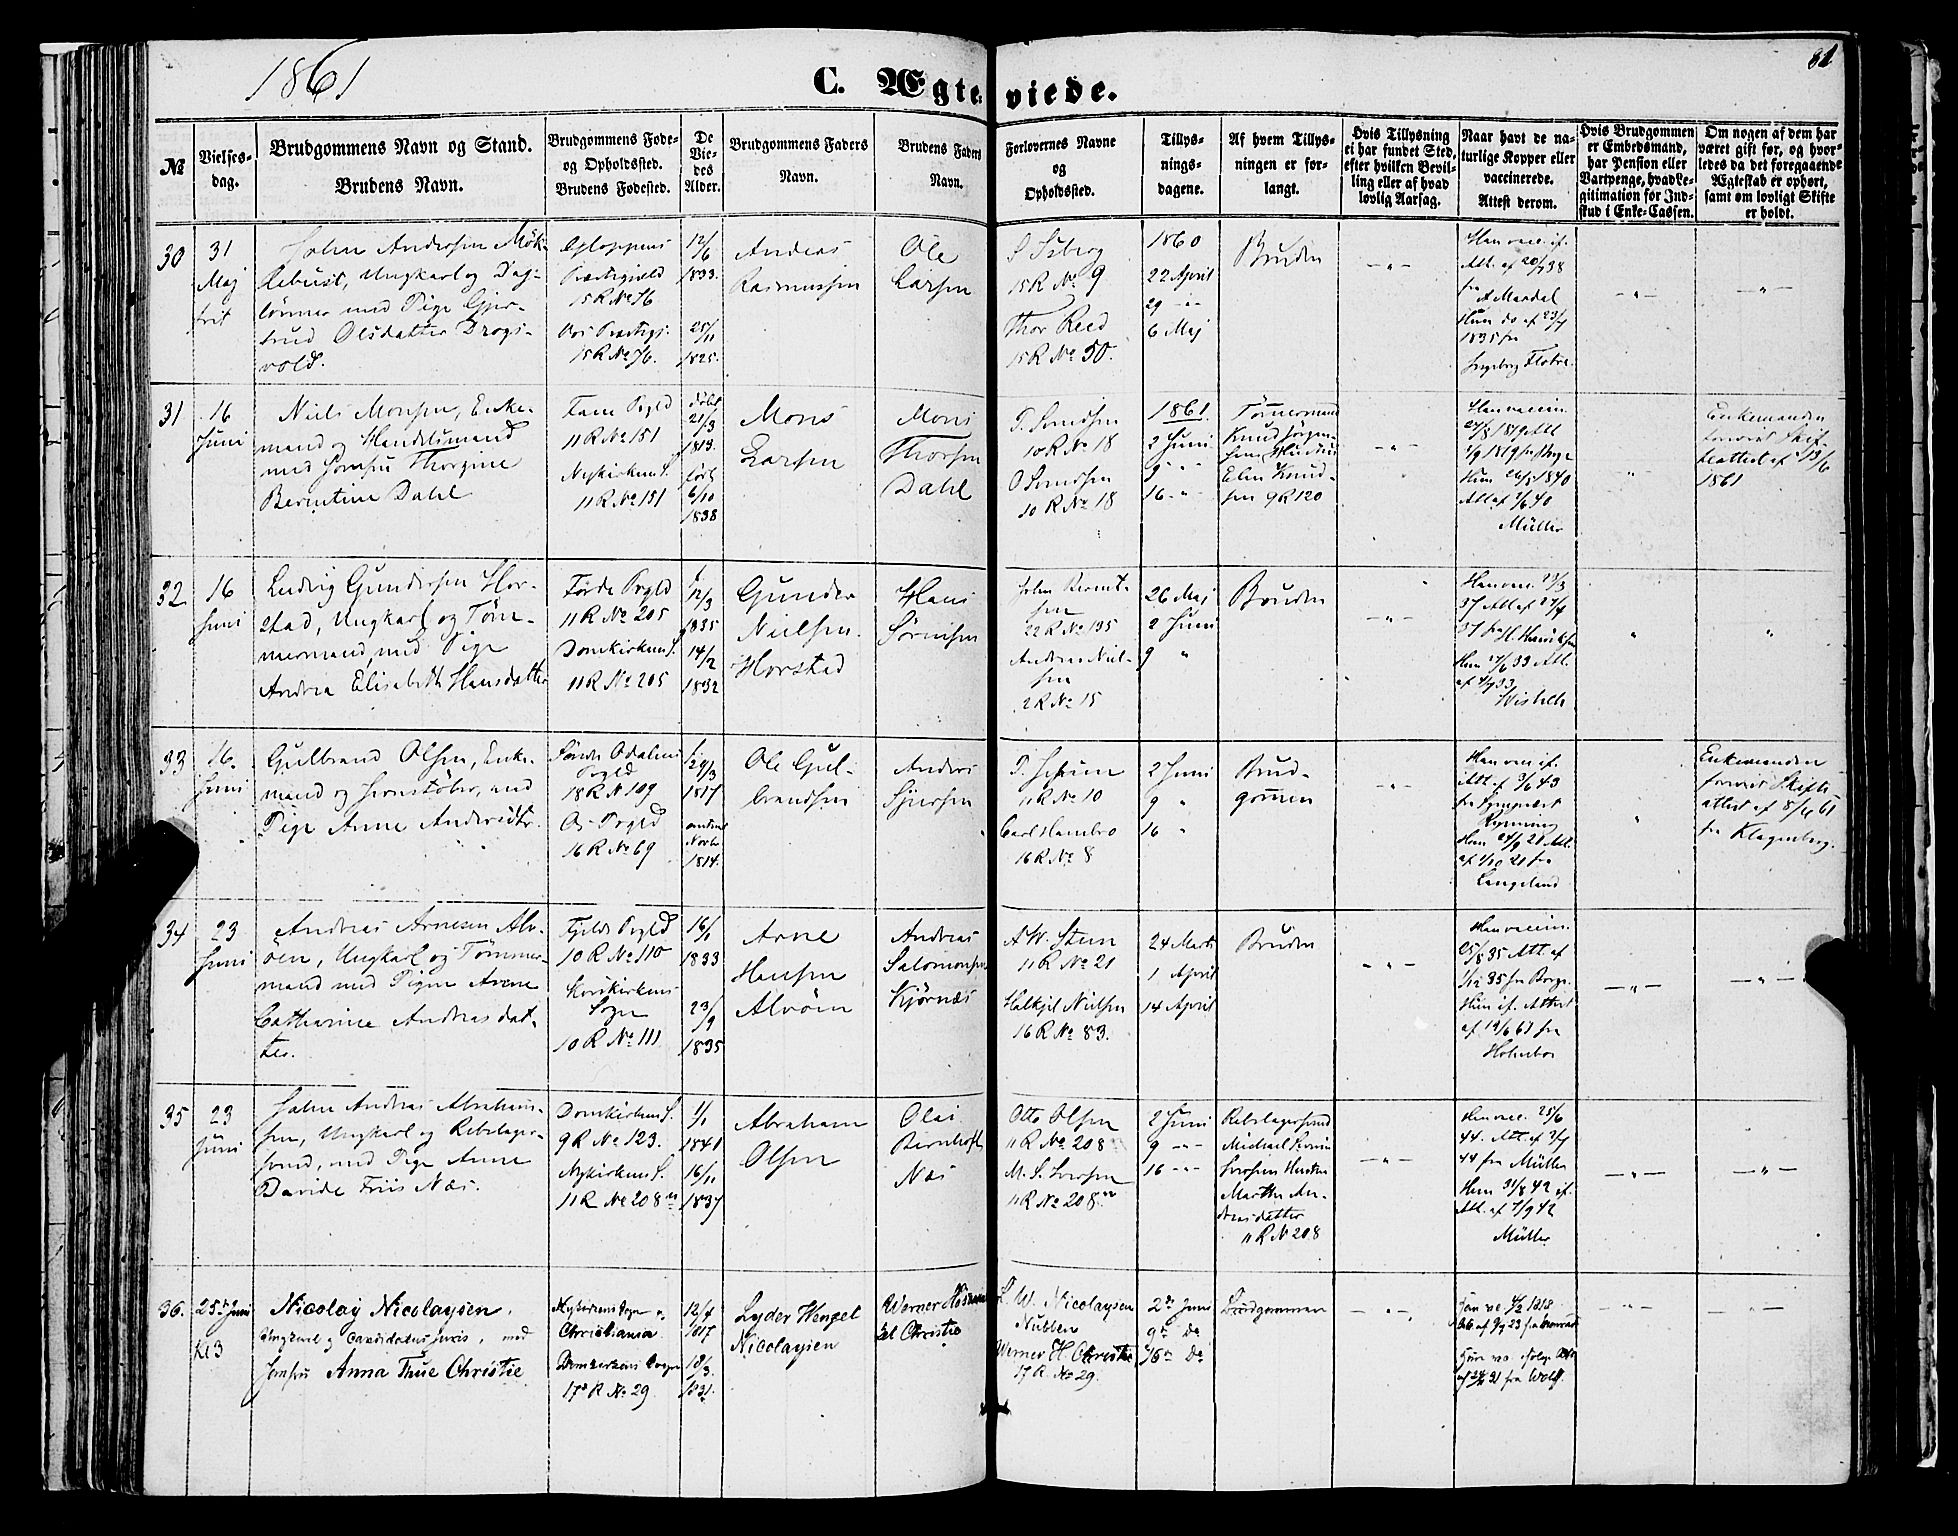 1861
C. Ægteviede.
81
№
Vielses-
dag.
Brudgommens Navn og Stand.
Brudens Navn.
Brudgommens Føde-
og Opholdssted.
Brudens Fødested.
De
Vie-
des
Alder.
Brudgommens Faders
Navn.
Brudens Faders
Navn.
Forlovernes Navne
og
Opholdssted.
Tillys-
nings-
dagene.
Af hvem Tillys-
ningen er for-
langt.
Hvis Tillysning
ei har fundet Sted,
efter hvilken Bevil-
ling eller af hvad
lovlig Aarsag.
Naar havt de na-
turlige Kopper eller
vaccinerede.
Attest derom.
Hvis Brudgommen
er Embedsmand,
har Pension eller
Vartpenge, hvad Le-
gitimation for Ind-
skud i Enke-Cassen.
Om nogen af dem har
været gift før, og hvor-
ledes da det foregaaende
Ægteskab er ophørt,
samt om lovligt Skifte
er holdt.
30
31
Maj
frit
John Andersen Mök-
lebust, Ungkarl og Dag-
lönner med Pige Gjer-
trud Olsdatter Drogs-
vold.
Gloppens
Præstegjeld
15 R No 76
Vos Præstegj.
15 R No 76.
12/6
1833.
25/11
1825.
Andreas
Rasmussen
Ole
Larsen
S Isberg
15 R No 9
Thor Reed
15 R No 50.
1860
22 April
29 - " -
6 Maj
Bruden
- " -
Han vacc. if.
Att. af 20/7 38
fra
A Mardal
Hun do af 23/7
1835 fra
Ingeborg Flotre.
- " -
- " -
31
16
Juni
Niels Monsen, Enke-
mand og Handelsmand
med Jomfru Thorgine
Berntine Dahl
Fane Prgld
11 R No 151
Nykirkens S.
11 R No 151
döbt
21/3
1813.
født
6/10
1838
Mons
Larsen
Mons
Thorsen
Dahl
10 R No 18
O Svendsen
10 R No 18
1861
2 Juni
9 " "
16 - "
Tömmermand
Knud Jörgen-
Elen Knud-
sen 9 R 120
- " -
Han vaccin.
Hun 26/5 1840
Att af 1/6 40
Müller
"
Enkemanden
forevist Skif-
teattest af 13/6
1861
32
16
Juni
Ludvig Gundersen Hor-
stad, Ungkarl og Töm-
mermand, med Pige
Andrea Elisabeth Hansdatter
Førde Prgld
11 R No 205
Domkirkens S.
11 R No 205
f.
12/3
1835
14/2
1832
Gunder
Nielsen
Horstad
Hans
Sörensen
John Bernt-
sen
22 R No 135
Andreas Niel-
sen
2 R No 15
26 Maj
2 Juni
9 "
Bruden
- " -
Han vacc. 23/3
37 Att af 27/4
37 fra H. Henriksen
Hun 17/6 33 Att.
af 4/9 33
"
"
33
16.
Juni
Gulbrand Olsen, Enke-
mand og Jernstöber, med
Pige Anne Andersdtr.
Søndre Odalens
Prgld
18 R N 109
Os Prgld
16 R No 69
f.
29/3
1817
Novbr
1814.
Ole Gul-
brandsen
Anders
Sjursen
11 R No 10
Carl Hambro
16 R No 8
2 Juni
9 "
16 "
Brud-
gommen
- " -
Han vacc if.
Att af 3/6 43
Rynning
Hun 24/9 20 Att.
af 1/10 20 fra
Langeland
"
Enkemanden
forevist Skifte-
attest af 8/6 61
fra Klagenberg.
34
23
Juni
Andreas Arnesen Alv-
öen, Ungkarl og Tömmer-
mand med Pigen Anne
Catharine Andreasdat-
ter.
Fjelds Prgld
10 R No 110
Korskirkens
Sogn
10 R No 111
16/1
1833
23/9
1835
Arne
Hansen
Alvöen
Andreas
Salomonsen
Kjörnæs
A W. Steen
11 R No 21
Halkjel Nielsen
16 R No 83.
24 Marts
1 April
14 April
Bruden
- " -
Han vaccin.
25/8 35 Att. af
1/12 35 fra Borge
Hun if. Attest
af 19/6 61 fra
Holmboe
- " -
- " -
35
23
Juni
John Andreas Abraham-
sen, Ungkarl og Rebslager-
svend, med Pige Anne
Davide Friis Næs.
Domkirkens S.
9 R No 123.
Nykirkens S.
11 R No 208
1/1
1841
16/11
1837
Abraham
Olsen
Olai
Bernhoft
Næs
Otto Olsen
11 R No 208
M. S. Iversen
11 R No 208
2 Juni
9 - " -
16 - " -
Rebslagersvend
Michael Severin
Iversen Hustru
Marthe An-
dreasdatter
11 R N 208
- " -
Han vacc. 25/6
44. Att. af 3/7
44 fra Müller
Hun 31/8 42 if.
Att. af 7/9 42
Müller
- " -
- " -
36.
25de Juni
Kl 3
Nicolay Nicolaysen,
Ungkarl og Candidatus juris, med
Jomfru Anna Thue Christie
Nykirkens Sogn
Christiania
Domkirkens Sogn
17de R No 29
12/4
1817
18/3.
1831.
Lyder Wenzel
Nicolaysen
Werner
Christie
L. W. Nicolaysen
Nubben
Werner H. Christie
17 R. No 29.
2de Juni
9de Do
16de Do
Brudgommen
- " -
Han vc. 4/2 1818
af 24/ 31 fra Wolff.
- " -
- " -